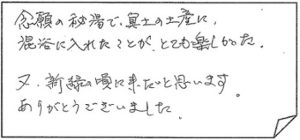 念願の秘湯で、冥土の土産に、
混浴に入れたことが、とても楽しかった。
又、新緑の頃に来たいと思います。
ありがとうございました。